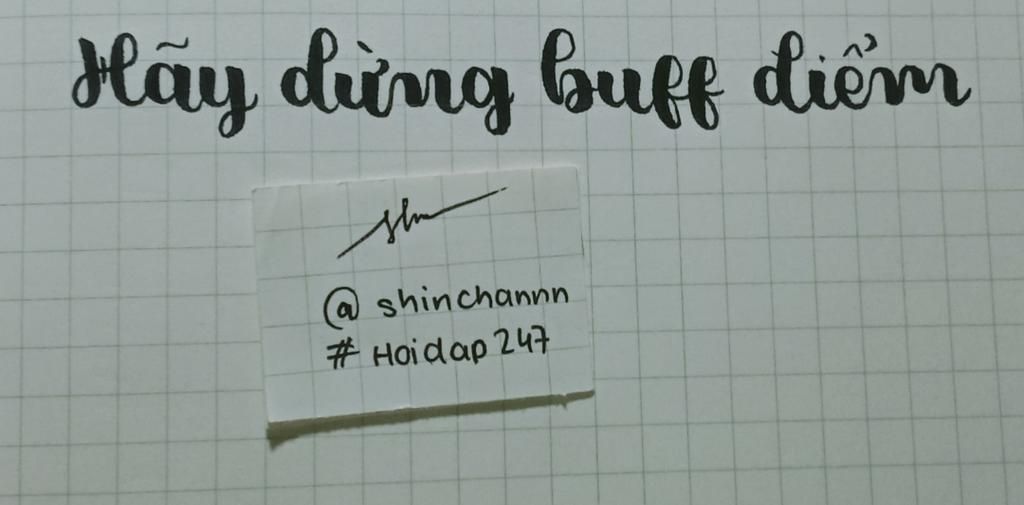 Hãy dừng buff điểm
shn
@ shinchannn
# Hoidap 247